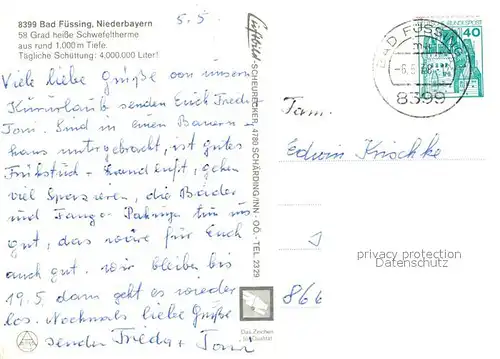 8399 Bad Füssing, Niederbayern
58 Grad heiße Schwefeltherme
aus rund 1.000 m Tiefe.
Tägliche Schüttung: 4.000.000 Liter!
5.5
Viele liebe Grüße von unserm
Kururlaub senden Euch Frieda
Toni. Sind in einen Bauern-
haus untergebracht, ist gutes
Frühstück + Landluft, gehen
viel Spazieren, die Bäder
und Fango-Pakunge tun uns
gut, das wäre für Euch
auch gut. Wir bleiben bis
19.5. dann geht es wieder
los. Nochmals liebe Grüße
senden Frieda + Toni
Luftbild-SCHEURECKER, 4780 SCHÄRDING/INN - OÖ. - TEL. 2329
Das Zeichen
für Qualität
BAD FÜSSING
8399
DEUTSCHE BUNDESPOST
40
Fam.
Edwin Krischke
866
privacy protection
Datenschutz